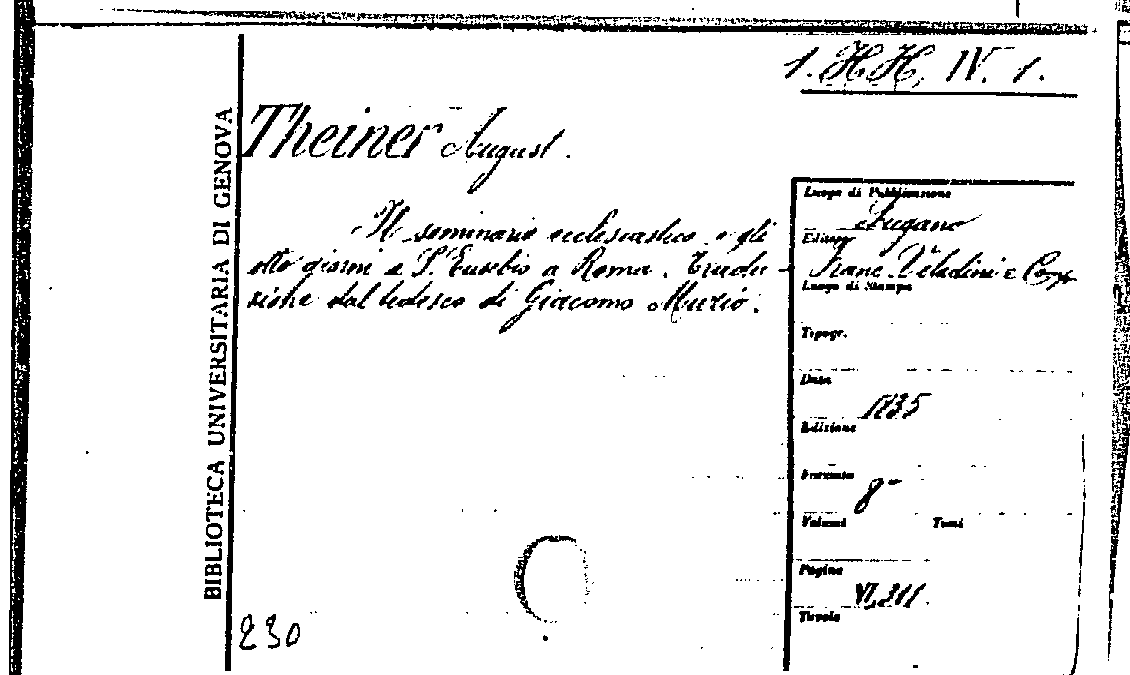 1. HH, IV. 1.
BIBLIOTECA UNIVERSITARIA DI GENOVA
Theiner August.
Il seminario ecclesiastico e gli
otto giorni a S. Eusebio a Roma. Tradu-
zione dal tedesco di Giacomo Mucio.
Luogo di Pubblicazione
Lugano
Editore
Franc. Veladini e Comp
Luogo di Stampa
Tipogr.
Data
1835
Edizione
Formato
8º
Volumi Tomi
Pagine
VI, 311
Tavole
230